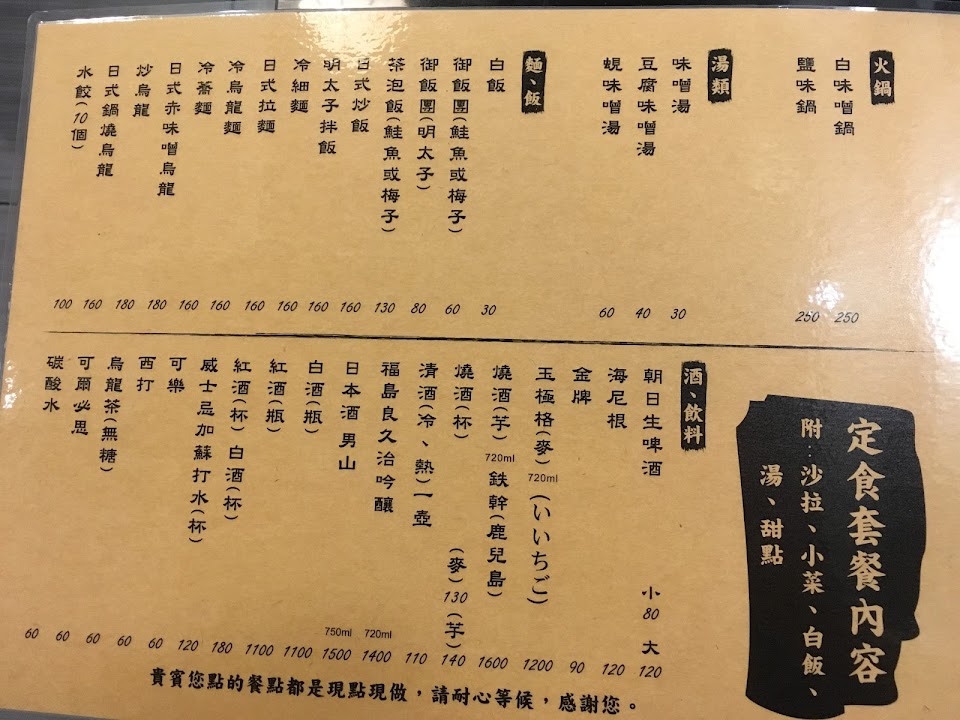 火鍋
白味噌鍋 250
鹽味鍋 250
湯類
味噌湯 30
豆腐味噌湯 40
蜆味噌湯 60
麵、飯
白飯 30
御飯團(鮭魚或梅子) 60
御飯團(明太子) 80
茶泡飯(鮭魚或梅子) 130
日式炒飯 160
明太子拌飯 160
冷細麵 160
日式拉麵 160
冷烏龍麵 160
冷蕎麵 160
日式赤味噌烏龍 180
炒烏龍 180
日式鍋燒烏龍 160
水餃(10個) 100
定食套餐內容
附:沙拉、小菜、白飯、
湯、甜點
酒、飲料
朝日生啤酒 小 80 大 120
海尼根 120
金牌 90
玉極格(麥) 720ml (いいちご) 1200
燒酒(芋) 720ml 鉄幹(鹿兒島) 1600
燒酒(杯) (麥) 130 (芋) 140
清酒(冷、熱)一壺 110
福島良久治吟釀 720ml 1400
日本酒 男山 750ml 1500
白酒(瓶) 1100
紅酒(瓶) 1100
紅酒(杯) 白酒(杯) 180
威士忌加蘇打水(杯) 120
可樂 60
西打 60
烏龍茶(無糖) 60
可爾必思 60
碳酸水 60
貴賓您點的餐點都是現點現做,請耐心等候,感謝您。